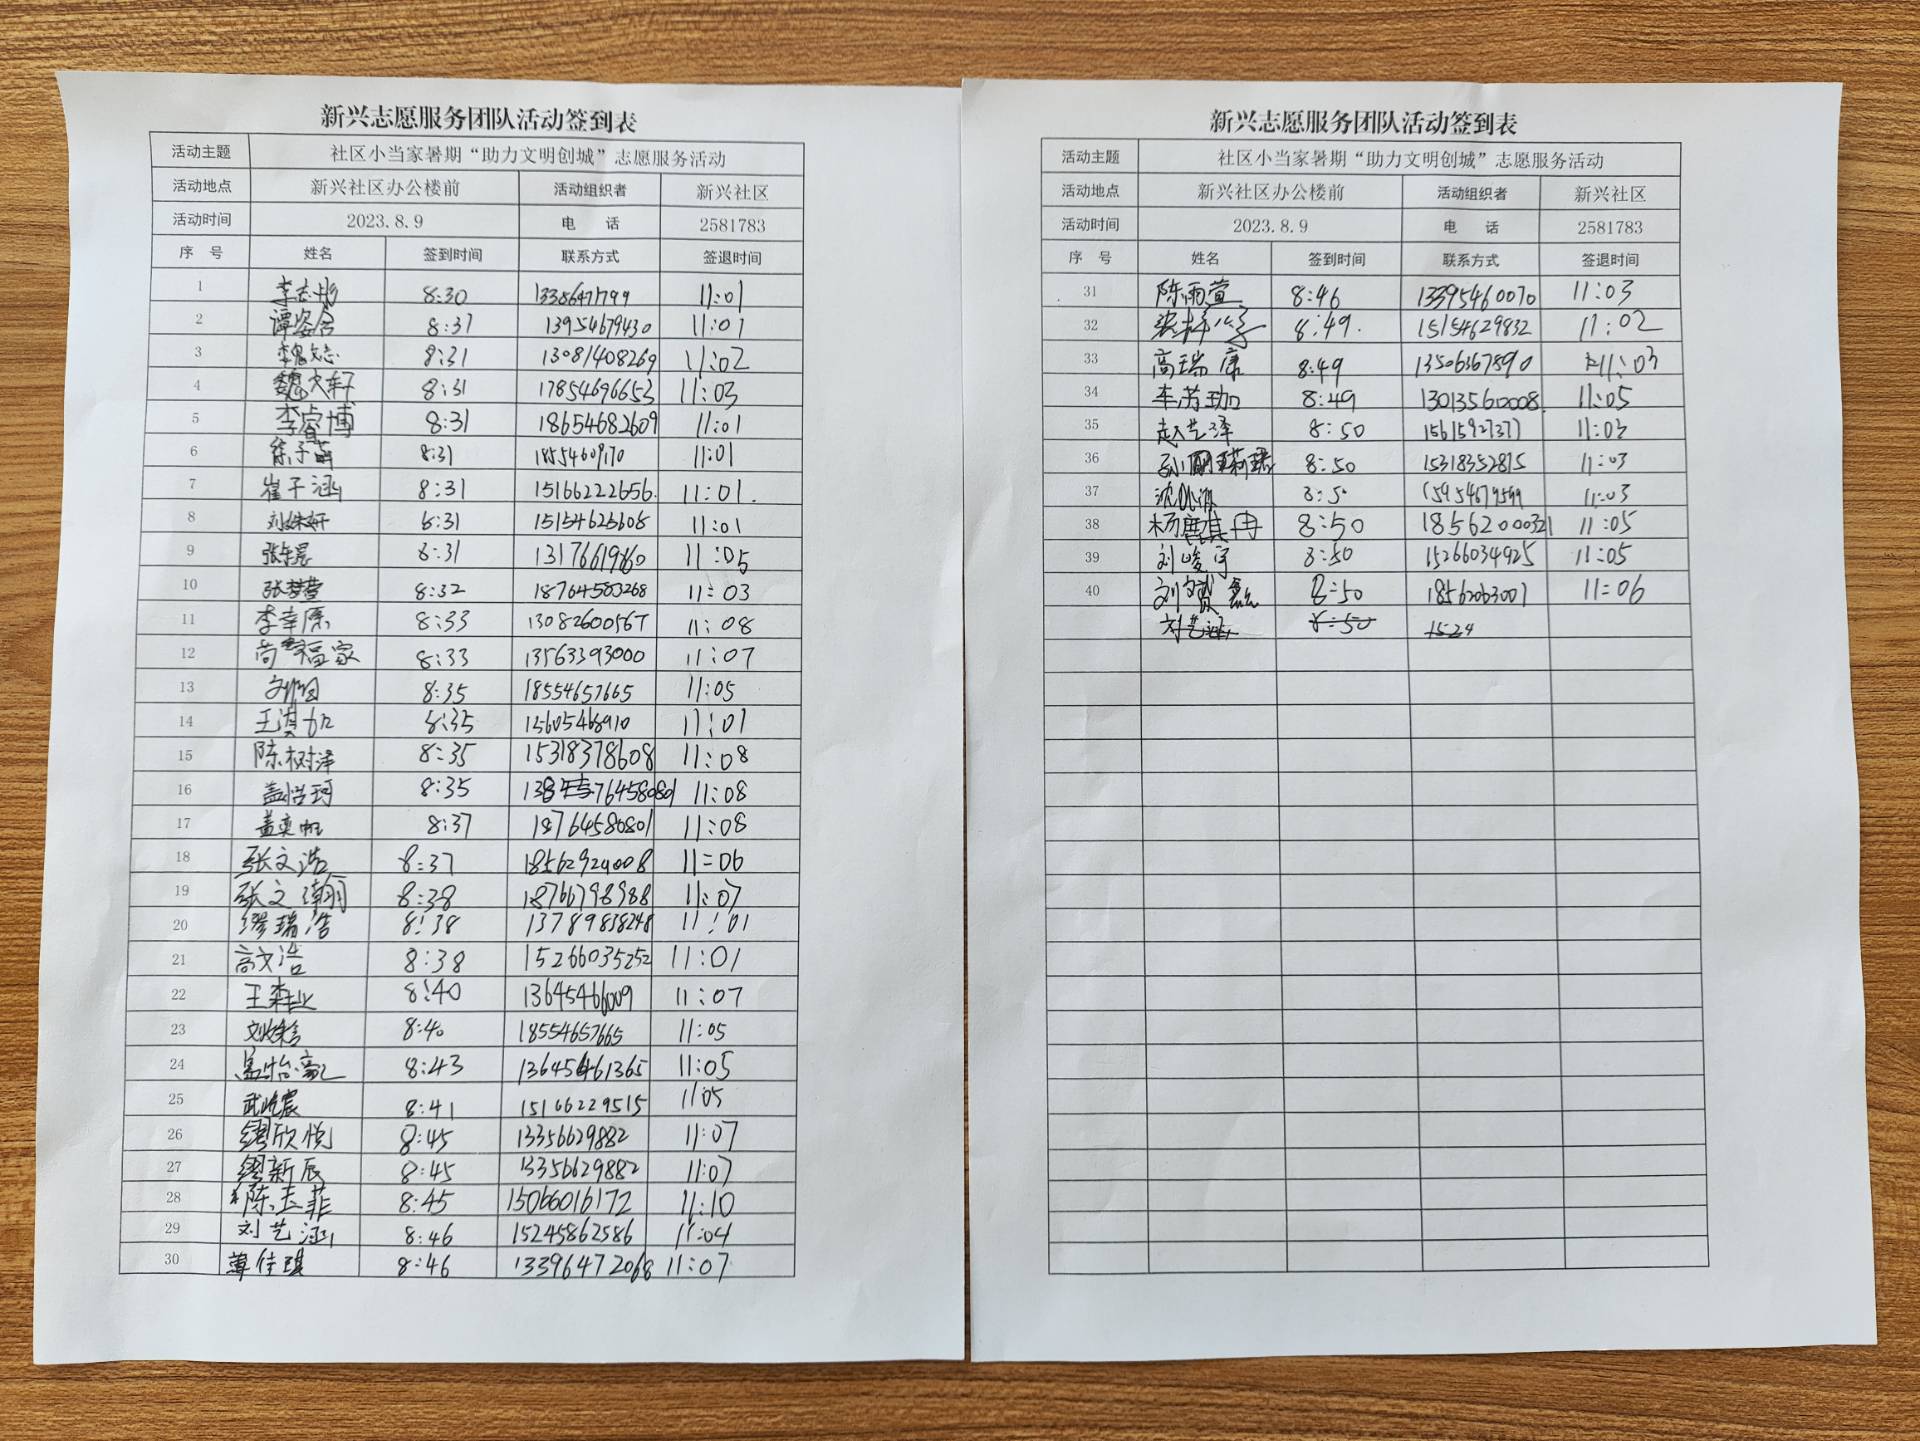 新兴志愿服务团队活动签到表
活动主题 社区小当家暑期“助力文明创城”志愿服务活动
活动地点 新兴社区办公楼前 活动组织者 新兴社区
活动时间 2023.8.9 电 话 2581783
序 号 姓名 签到时间 联系方式 签退时间
1 8:30 13386471799 11:01
2 谭安舍 8:31 13954679430 11:01
3 8:31 13081408269 11:02
4 魏文轩 8:31 17854696653 11:03
5 李睿博 8:31 18654682609 11:01
6 8:31 11:01
7 崔子涵 8:31 15166222656 11:01
8 刘姝妍 8:31 11:01
9 8:31 11:05
10 张梦萱 8:32 18764583268 11:03
11 李幸原 8:33 13082600567 11:08
12 8:33 13563393000 11:07
13 8:35 18554657665 11:05
14 王淇加 8:35 11:01
15 陈树泽 8:35 15318378608 11:08
16 8:35 11:08
17 盖奕帆 8:37 18764580801 11:08
18 张文浩 8:37 18562924008 11:06
19 张文瀚 8:38 18766798988 11:07
20 缪瑞浩 8:38 13789838248 11:01
21 高文浩 8:38 15266035252 11:01
22 8:40 13645466009 11:07
23 8:40 18554657665 11:05
24 8:43 13645461365 11:05
25 8:41 15166229515 1105
26 缪欣悦 8:45 13356629882 11:07
27 缪新辰 8:45 13356629882 11:07
28 陈玉菲 8:45 15066016172 11:10
29 刘艺涵 8:46 15245862586 11:04
30 薄佳琪 8:46 13396472068 11:07
新兴志愿服务团队活动签到表
活动主题 社区小当家暑期“助力文明创城”志愿服务活动
活动地点 新兴社区办公楼前 活动组织者 新兴社区
活动时间 2023.8.9 电 话 2581783
序 号 姓名 签到时间 联系方式 签退时间
31 陈雨萱 8:46 13395460070 11:03
32 8:49. 15154629832 11:02
33 高瑞康 8:49 13506367890 11:03
34 李芳珈 8:49 13013560008 11:05
35 赵艺泽 8:50 15615927377 11:03
36 8:50 15318352815 11:03
37 8:50 11:03
38 8:50 18562000321 11:05
39 刘峻宇 8:50 15266034925 11:05
40 8:50 18562063007 11:06